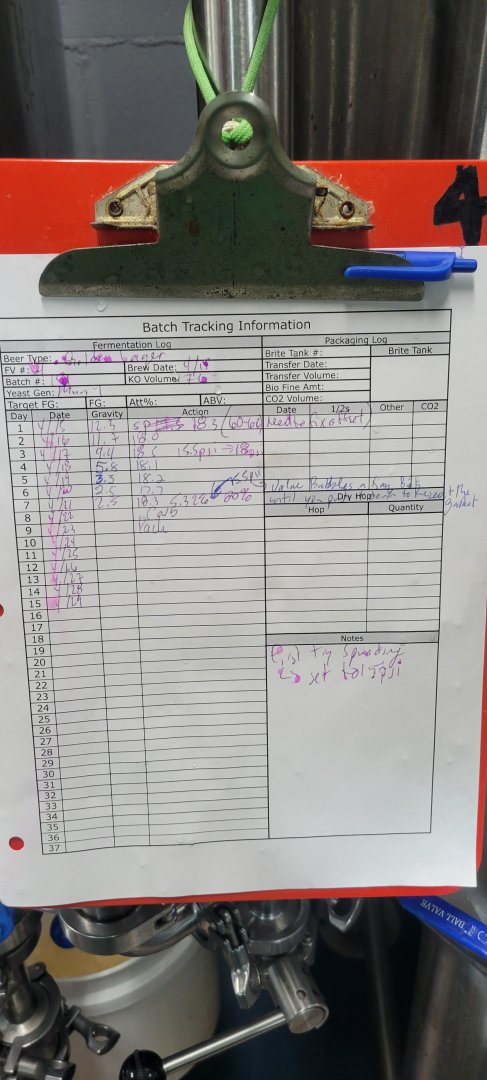 4
Batch Tracking Information
Fermentation Log
Packaging Log
Beer Type: Lager
Brite Tank #:
Brite Tank
FV #:
Brew Date: 4/1
Transfer Date:
Batch #:
KO Volume: 76
Transfer Volume:
Yeast Gen:
Bio Fine Amt:
Target FG:
FG:
Att%:
ABV:
CO2 Volume:
Day
Date
Gravity
Action
Date
1/2s
Other
CO2
1 4/15 12.3 18.3 (60-66 Need to fix offset)
2 4/16 11.7 18.0
3 4/17 9.4 18.6 15.5psi → 18psi
4 4/18 5.8 18.1
5 4/19 3.5 18.2
6 4/20 2.5
7 4/21 2.5 18.3 5.32% 20%
until you
Dry Hop
Hop
Quantity
8 4/22 Carb
9 4/23
10 4/24
11 4/25
12 4/26
13 4/27
14 4/28
15 4/29
16
17
18
19
20
21
22
23
24
25
26
27
28
29
30
31
32
33
34
35
36
37
Notes
First try Spunding
↳ set to 15psi
BALL VALVE